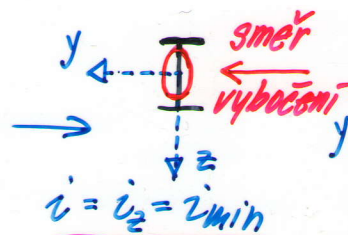 směř
y
vybočení
y
z
i = iz = imin